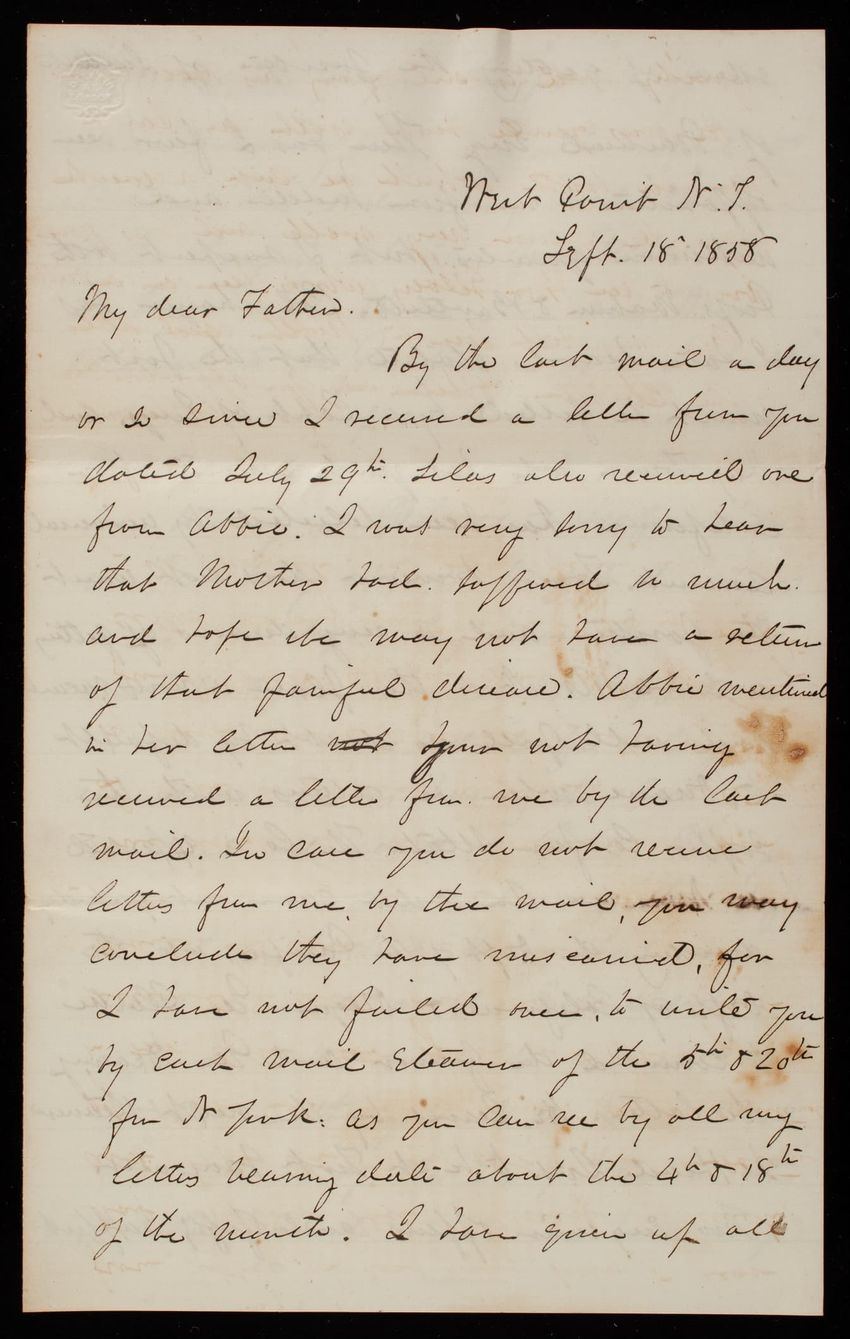 West Point N. T.
Sept. 18 1858
My dear Father.
By the last mail a day
or 2 since I received a letter from you
dated July 29th. Silas also received one
from Abbie. I was very sorry to hear
that Mother had suffered so much
and hope she may not have a return
of that painful disease. Abbie mentioned
in her letter not your not having
received a letter from me by the last
mail. In case you do not receive
letters from me, by the mail, you may
conclude they have miscarried, for
I have not failed once, to write you
by each mail Steamer of the 5th & 20th
for N York. as you can see by all my
letters bearing date about the 4th & 18th
of the month. I have given up all